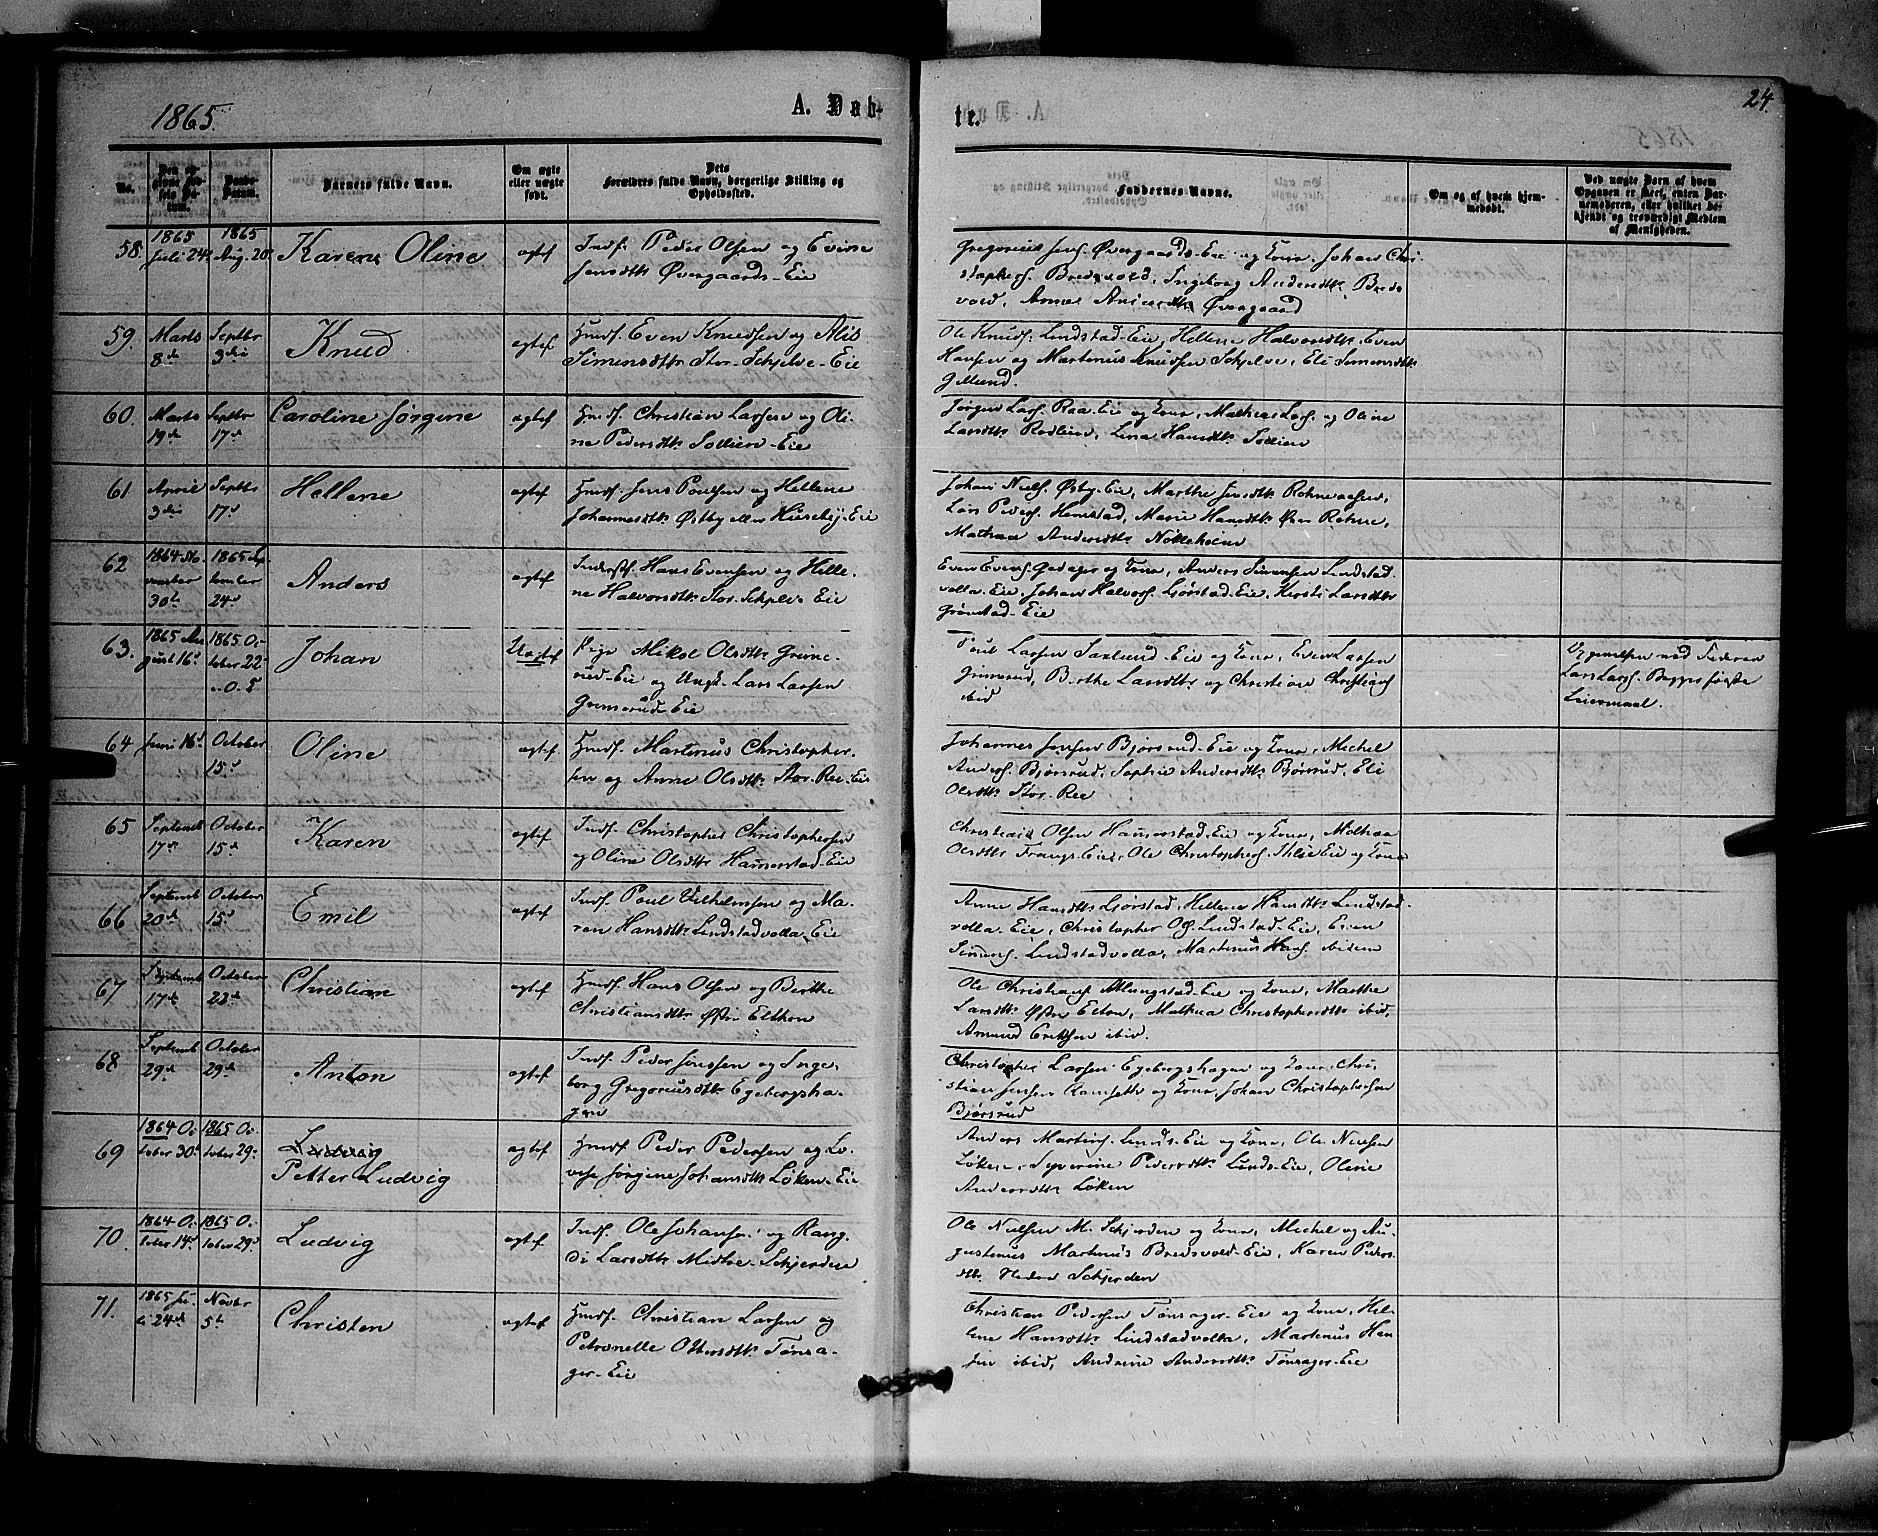 1865.
A. Døb-
te.
24.
No.
Den opgivne Fødsels Datum.
Daabs-Datum.
Barnets fulde Navn.
Om ægte eller uægte født.
Dets Forældres fulde Navn, borgerlige Stilling og Opholdssted.
Faddernes Navne.
Om og af hvem hjemmedøbt.
Ved uægte Børn af hvem Opgaven er skeet, enten Barnemoderen, eller hvilket bekjendt og troværdigt Medlem af Menigheden.
58. 1865 Juli 24 1865 Aug. 20 Karen Oline ægtef Indf. Peder Olsen og Evine
Jensdtr Øvergaards-Eie
Gregorius Jens. Øvergaards-Eie og Kone, Johan Chri-
stophers. Bredvold, Ingeborg Andersdtr. Breds
vold, Anne Andersdtr Øvergaard
59. Marts 8de Septbr 3die Knud ægtef Huusf. Even Knudsen og Alis
Simensdtr Stor-Schjelve-Eie
Ole Knuds. Lindstad-Eie, Hellene Halvorsdtr, Even
Hansen og Martinus Knudsen Schjelve, Eli Simensdtr
Gillund.
60. Marts 19de Septbr 17de Caroline Jørgine ægtef Huusf. Christian Larsen og Oli-
ne Pedersdtr. Sollien-Eie
Jørgen Lars. Raa-Eie og Kone, Mathias Lars. og Oline
Larsdtr Rodlien, Lina Hansdtr. Sollien
61 April 3die Septbr 17d Hellene ægtef Huusf. Jens Poulsen og Hellene
Johannesdtr Østby eller Huseby-Eie
Johan Niels. Østby-Eie, Marthe Jensdtr
Lars Peders. Hemstad, Marie Hansdtr. Øvre Rohne,
Mathea Andersdtr
62 1864 November 30te 1865 September 24d Anders ægtef Inderst. Hans Evensen og Helle-
ne Halvorsdtr Stor-Schjelve Eie
Even Evens. og Kone, Anders Simensen Lindstad-
volla-Eie, Johan Halvors. Gjørstad-Eie, Kirsti Larsdtr
Grønstad-Eie
63. 1865 August 16d 1865 October 22 Johan Uægtef Pige Mikol Olsdtr. Grime-
rud-Eie og Ungk. Lars Larsen
Grimerud-Eie
Poul Larsen Saxlund-Eie og Kone, Even Larsen
Grimerud, Berthe Larsdtr og Christian Christians.
ibid
Lars Lars. Begges første
Leiermaal.
64 Juni 16d October 15d Oline ægtef Huusf. Martinus Christopher-
sen og Anne Olsdtr. Stor-Ree-Eie
Johannes Jensen Bjørsrud-Eie og Kone, Michel
Anders. Bjørsrud, Sophie Andersdtr. Bjørsrud, Eli
Olsdtr. Stor-Ree
65 Septemb 17de October 15d Karen ægtef Indf. Christopher Christophersen
og Oline Olsdtr Hammerstad-Eie
Christian Olsen Hammerstad-Eie og Kone, Mathea
Olsdtr Frangs-Eie, Ole Christophers. Eie og Kone
66 Septemb 20d October 15d Emil ægtef Indf. Poul Vilhelmsen og Ma-
ren Hansdtr. Lindstadvolla-Eie
Anne Hansdtr. Gjørstad, Hellene Hansdtr. Lindstad-
volla-Eie, Christopher Ols. Lindstad-Eie, Even
Simens. Lindstadvolla, Martinus Hans. ibidem
67 Septemb 17de October 22d Christian ægtef Huusf. Hans Olsen og Berthe
Christiansdtr Østre Elthon
Ole Christians. Alungstad-Eie og Kone, Marthe
Larsdtr. Østre Elton, Mathea Christophersdtr ibid,
Amund Eriksen ibid.
68 Septemb 29d October 29d Anton ægtef Indf. Peder Jensen og Inge-
borg Gregoriusdtr. Egebergsha-
gen
Christopher Larsen Egebergshagen og Kone, Chri-
stian Jensen Ramseth og Kone, Johan Christophersen
Bjørsrud
69 1864 October 30d 1865 October 29d Ludvig
Petter Ludvig ægtef Huusf. Peder Pedersen og Lo-
vise Jørgine Johansdtr Løken-Eie
Anders Martins. Lunds-Eie og Kone, Ole Nielsen
Løken, Severine Pedersdtr. Lunds-Eie, Oline
Andersdtr Løken
70. 1864 October 14d 1865 October 29d Ludvig ægtef Indf. Ole Johans. og Rang-
di Larsdtr Midtre-Schjerden
Ole Nielsen M. Schjerden og Kone, Michel og Au-
gustinus Martinus Bredvold-Eie, Karen Peders-
dtr. Nedre Schjerden
71. 1865 Juli 24d Novbr 5te Christen ægtef Huusf. Christian Larsen og
Petronelle Ottersdtr. Tønsa-
ger-Eie
Christian Pedersen Tønsager-Eie og Kone, Hel-
lene Hansdtr Lindstadvolla, Martinus Han-
sen ibid, Andrine Andersdtr. Tønsager-Eie